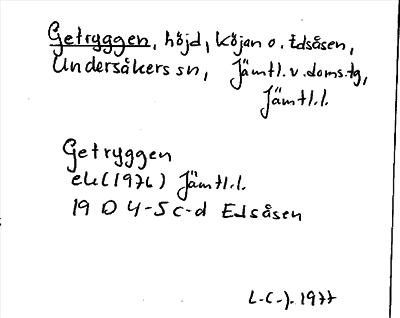 Getryggen, höjd, Köjan o. Edsåsen,
Undersåkers sn, Jämtl. v. doms.tg,
Jämtl.l.
Getryggen
ek (1976) Jämtl.l.
19 D 4-5 c-d Edsåsen
L-C-J. 1977